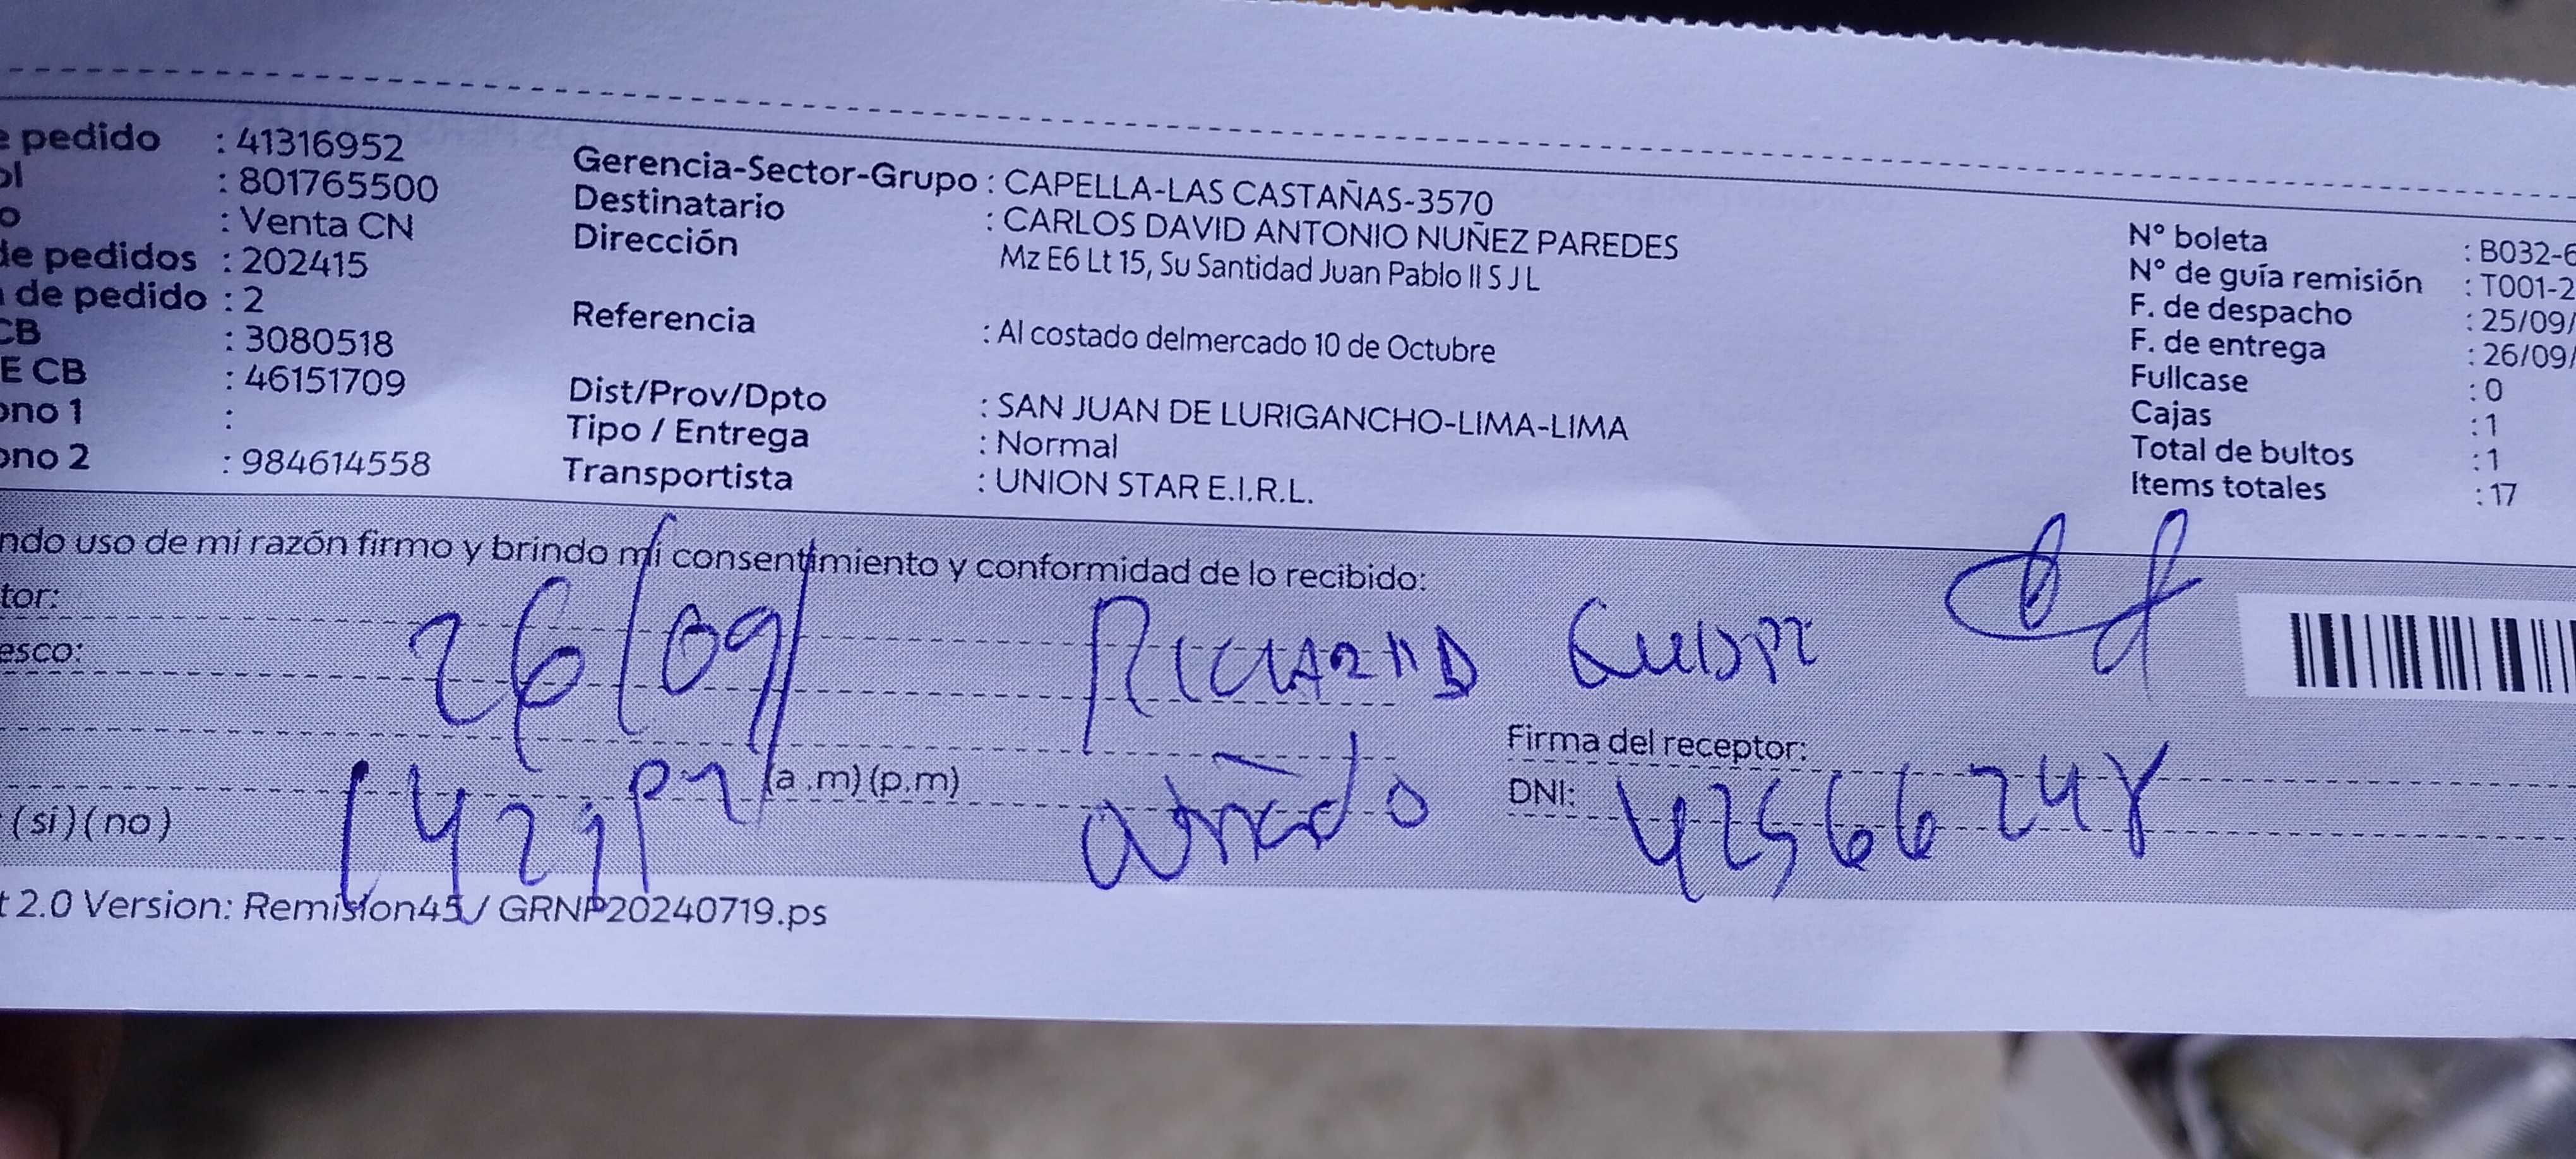 e pedido : 41316952
ol : 801765500
o : Venta CN
de pedidos : 202415
de pedido : 2
CB : 3080518
E CB : 46151709
ono 1 :
ono 2 : 984614558
Gerencia-Sector-Grupo : CAPELLA-LAS CASTAÑAS-3570
Destinatario : CARLOS DAVID ANTONIO NUÑEZ PAREDES
Dirección Mz E6 Lt 15, Su Santidad Juan Pablo II S J L
Referencia : Al costado delmercado 10 de Octubre
Dist/Prov/Dpto : SAN JUAN DE LURIGANCHO-LIMA-LIMA
Tipo / Entrega : Normal
Transportista : UNION STAR E.I.R.L.
N° boleta : B032-6
N° de guía remisión : T001-2
F. de despacho : 25/09/
F. de entrega : 26/09/
Fullcase : 0
Cajas : 1
Total de bultos : 1
Items totales : 17
ndo uso de mi razón firmo y brindo mi consentimiento y conformidad de lo recibido:
tor:
esco:
26/09/ RICHARD QUISPE
Firma del receptor:
(a .m) (p.m)
DNI: 42566248
(si) (no)
t 2.0 Version: Remision45 / GRNP20240719.ps